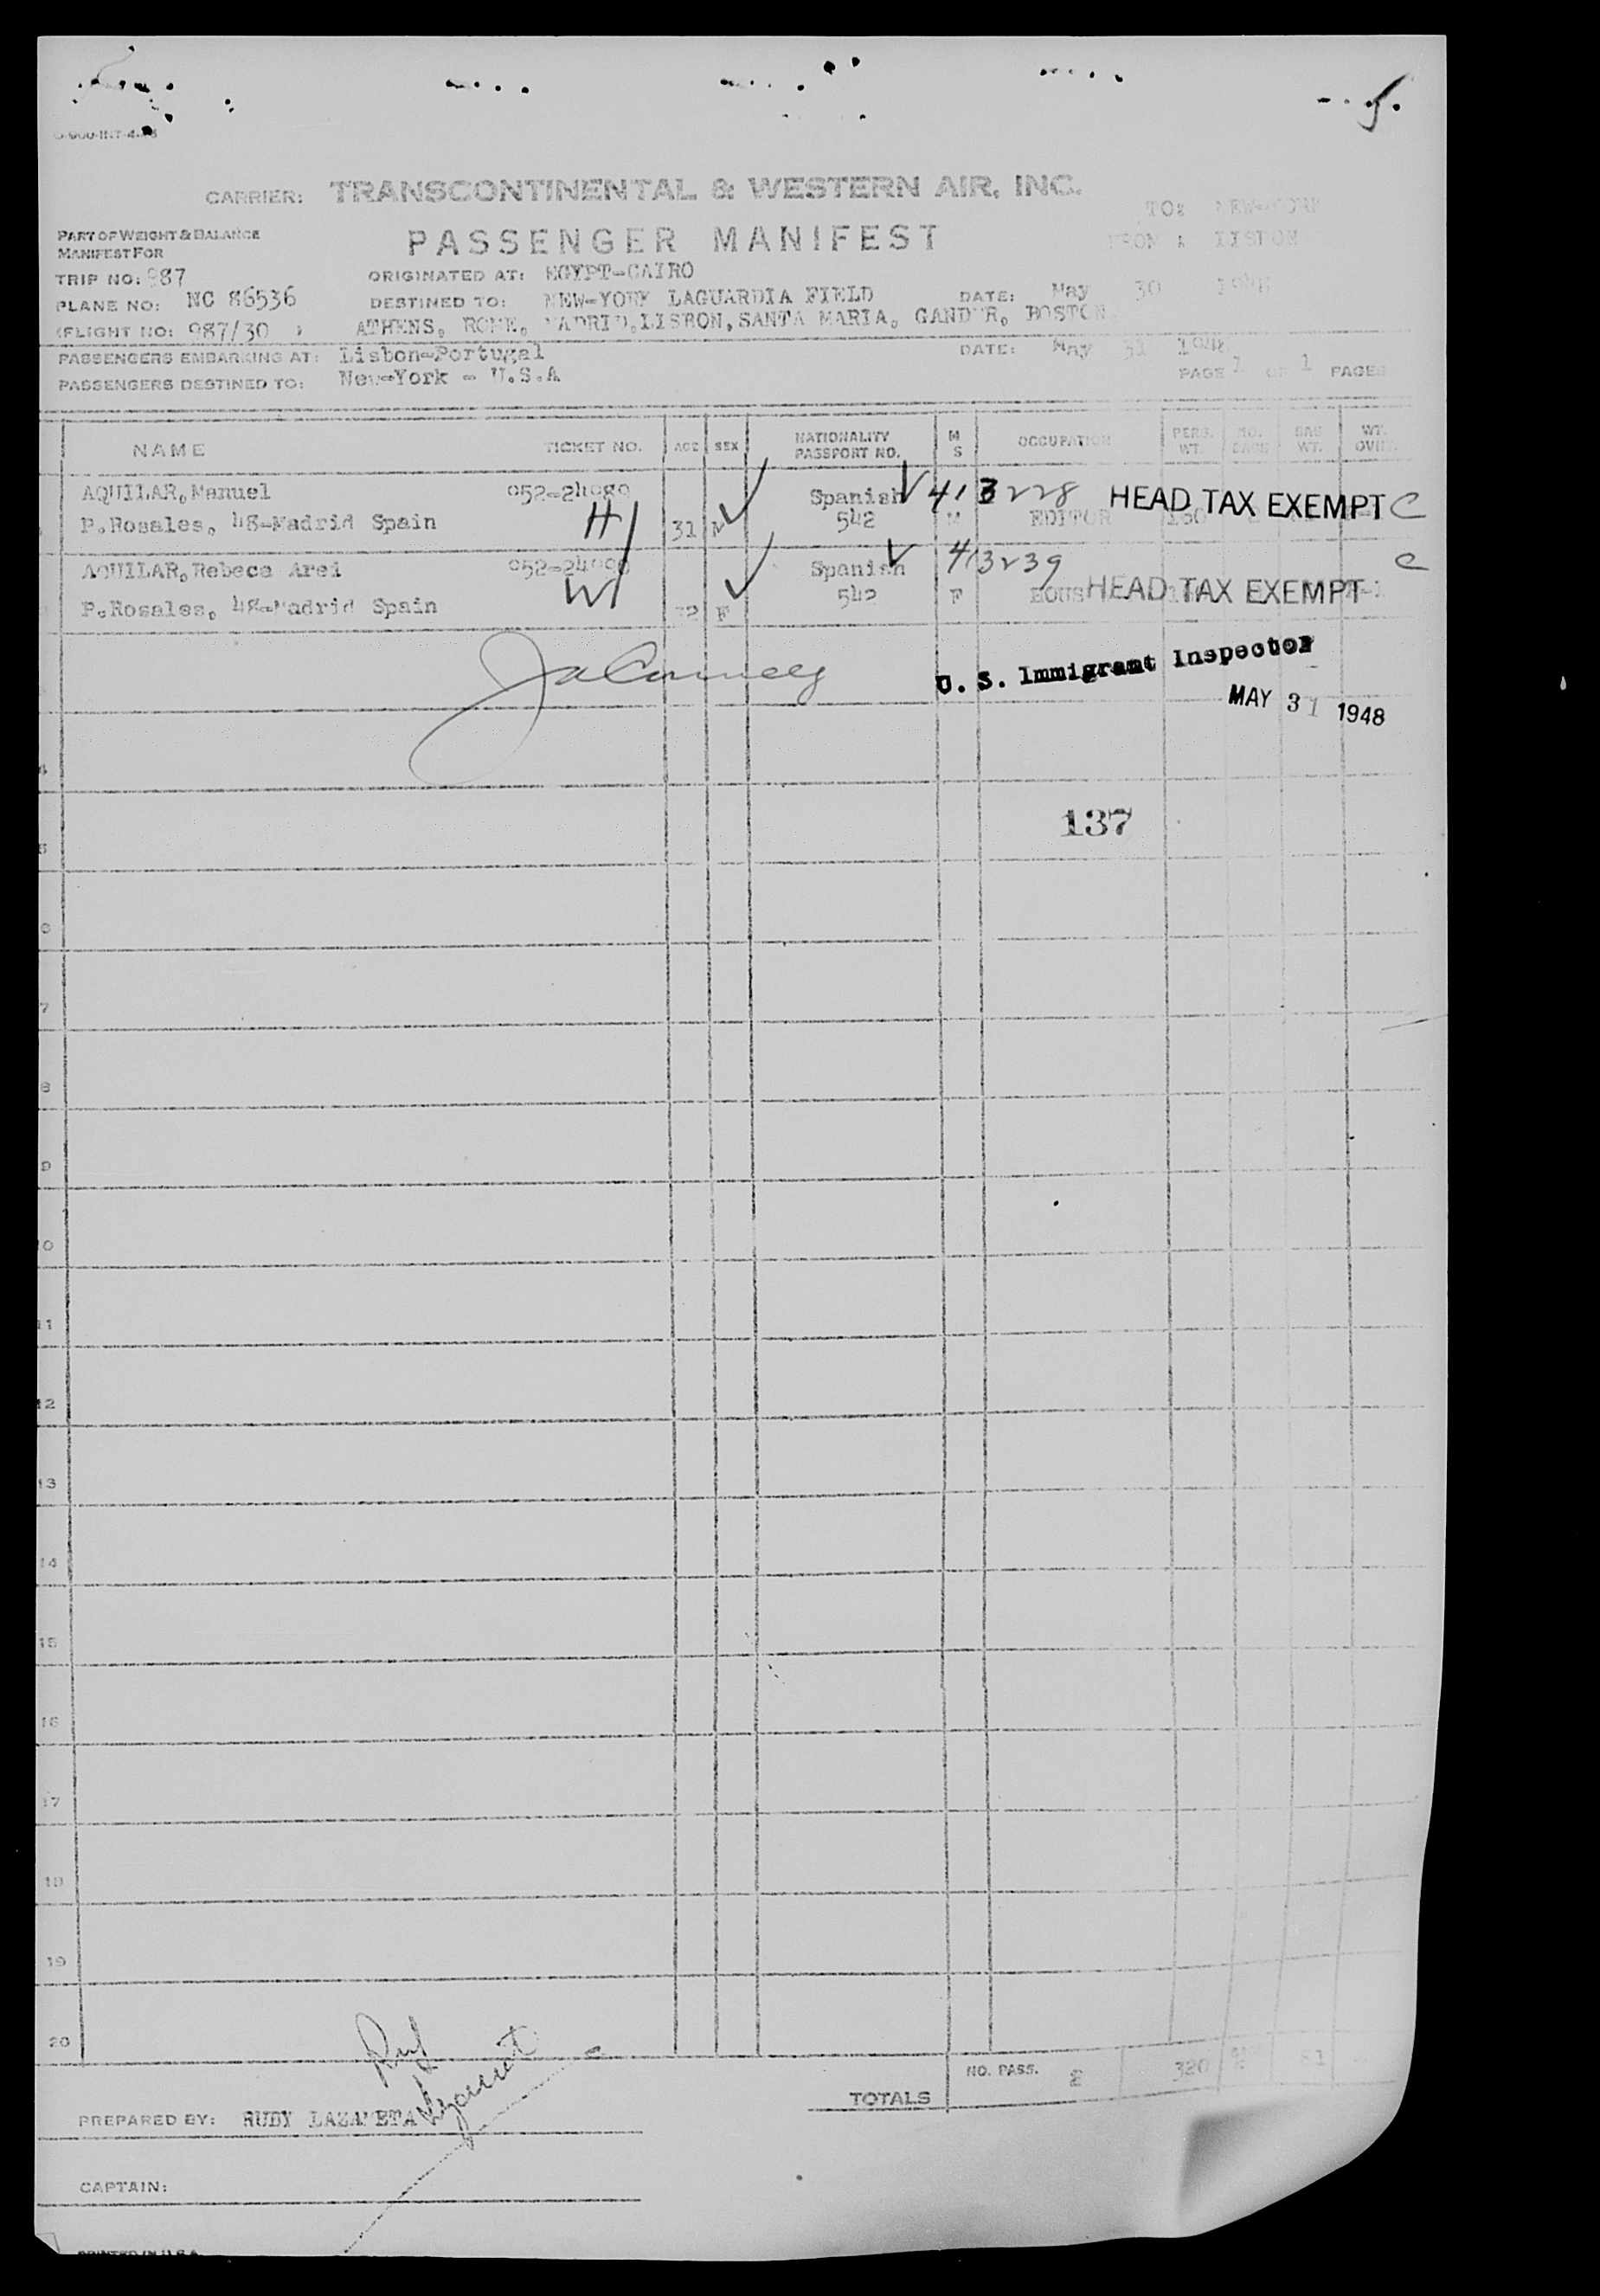 CARRIER: TRANSCONTINENTAL & WESTERN AIR, INC.
TO: NEW-YORK
PART OF WEIGHT & BALANCE
MANIFEST FOR
PASSENGER MANIFEST
FROM : LISBON
TRIP NO: 987
ORIGINATED AT: EGYPT-CAIRO
PLANE NO: NC 86536
DESTINED TO: NEW-YORK LAGUARDIA FIELD
DATE: May 30 1948
(FLIGHT NO: 987/30 )
ATHENS, ROME, MADRID,LISBON,SANTA MARIA, GANDER, BOSTON
PASSENGERS EMBARKING AT: Lisbon-Portugal
DATE: May 31 1948
PASSENGERS DESTINED TO: New-York - U.S.A
PAGE 1 OF 1 PAGES
NAME TICKET NO. AGE SEX NATIONALITY PASSPORT NO. M S OCCUPATION PERS. WT. NO. BAGS BAG WT. WT. OVER.
AQUILAR,Manuel Spanish 413228 HEAD TAX EXEMPT C
P.Rosales, 48-Madrid Spain H 31 M 542 M EDITOR
AQUILAR,Rebeca Arei Spanish 413239 C
P.Rosales, 48-Madrid Spain W 32 F 542 F HOUS HEAD TAX EXEMPT
U. S. Immigrant Inspector
MAY 31 1948
4
137
5
6
7
8
9
10
11
12
13
14
15
16
17
18
19
20
TOTALS NO. PASS. 2 320 81
PREPARED BY: RUDY LAZAMETA
CAPTAIN:
PRINTED IN U.S.A.